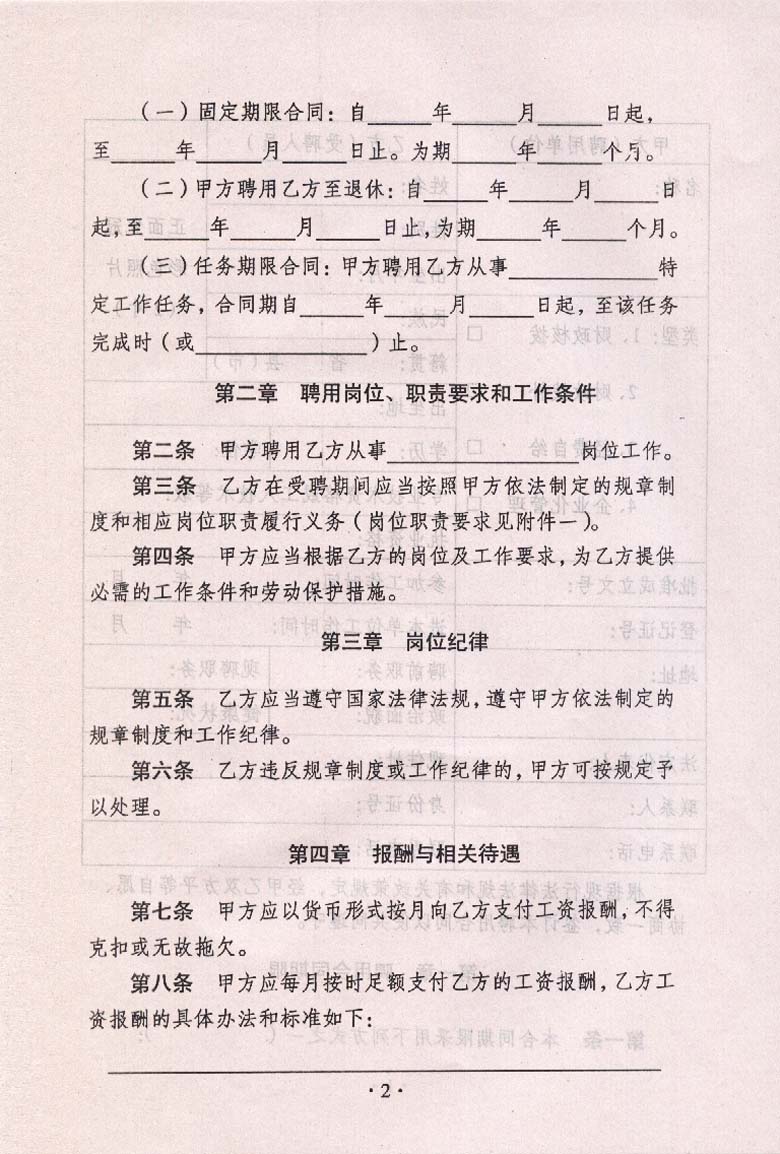 （一）固定期限合同：自______年______月______日起，
至______年______月______日止。为期______年______个月。
（二）甲方聘用乙方至退休：自______年______月______日
起，至______年______月______日止，为期______年______个月。
（三）任务期限合同：甲方聘用乙方从事______________特
定工作任务，合同期自______年______月______日起，至该任务
完成时（或________________）止。
第二章　聘用岗位、职责要求和工作条件
第二条　甲方聘用乙方从事__________________岗位工作。
第三条　乙方在受聘期间应当按照甲方依法制定的规章制
度和相应岗位职责履行义务（岗位职责要求见附件一）。
第四条　甲方应当根据乙方的岗位及工作要求，为乙方提供
必需的工作条件和劳动保护措施。
第三章　岗位纪律
第五条　乙方应当遵守国家法律法规，遵守甲方依法制定的
规章制度和工作纪律。
第六条　乙方违反规章制度或工作纪律的，甲方可按规定予
以处理。
第四章　报酬与相关待遇
第七条　甲方应以货币形式按月向乙方支付工资报酬，不得
克扣或无故拖欠。
第八条　甲方应每月按时足额支付乙方的工资报酬，乙方工
资报酬的具体办法和标准如下：
·2·